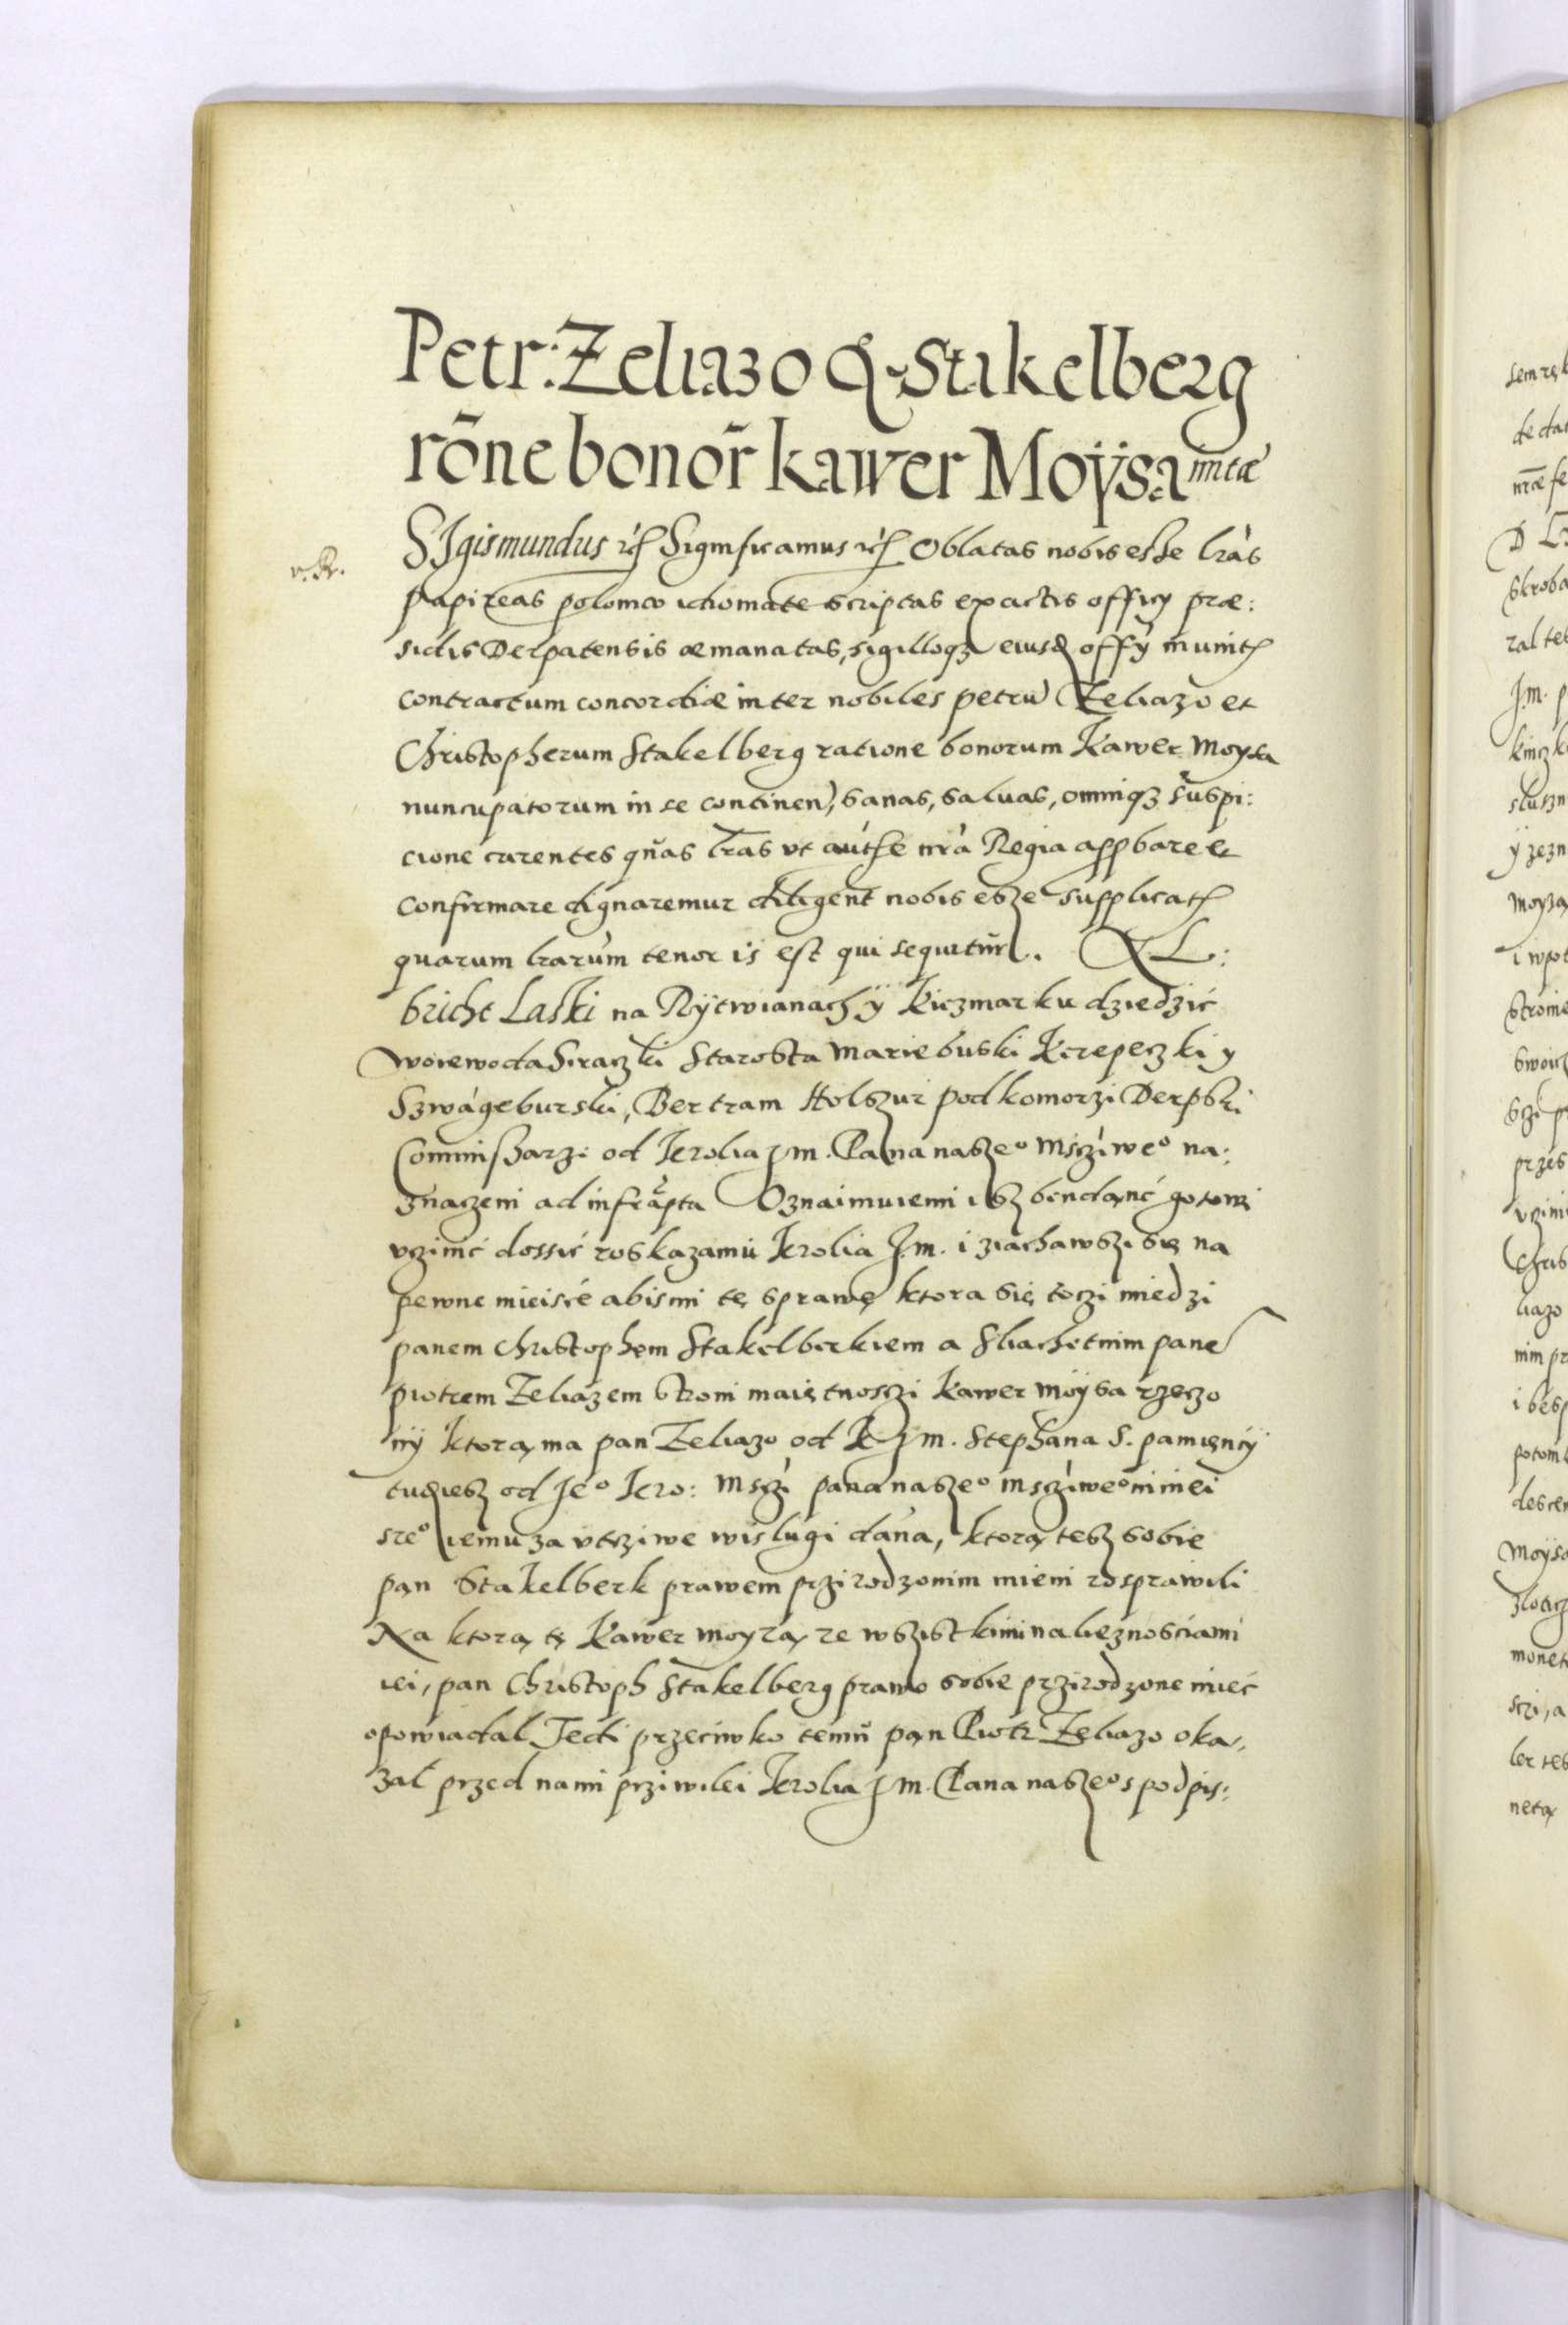 Petr: Zeliazo & Stakelberg
rōne bonor̄ kawer Moÿsa intæ
v. R.
SIgismundus etc Significamus etc Oblatas nobis esse lrās
papireas polonico idiomate scriptas ex actis officÿ præ:
sidis Derpatensis æmanatas, sigilloq3 eiusd offÿ munit
contractum concordiæ inter nobiles petrū Zeliazo et
Christopherum Stakelberg ratione bonorum Kawer Moysa
nuncupatorum in se continen, sanas, saluas, omniq3 suspi:
cione carentes qūas lrās vt autthe nrā Regia appbare et
confirmare dignaremur diligent nobis esze supplicat
quarum lrarum tenor is est qui sequitūr. XL:
bricht Laski na Rÿtwianach ÿ Kiczmarku dziedzić
woiewoda Siraczki Starosta Marieburski Krepeczki y
Szwágeburski, Bertram Holszur podkomorzi Derpski
Commissarzi od Krolia J m. Pana nasze° Msczíwe° na:
znaczeni ad infrãpta Oznaimuiemi isz bendąnć gotowi
vczinić dossić roskazaniú Krolia J.m. i ziachawszi się na
pewne mieisce abismi tę sprawę ktora się toczi miedzi
panem Christophem Stakelberkiem a Sliachetnim pane
piotrem Zeliazem stroni maiętnosczi Kawer moÿsa rzeczo
nÿ ktorą, ma pan Zeliazo od K J m. Stephana S. pamięnćÿ
tudziesz od Je° Kro: Msczi pana nasze° msczíwe° niniei
sze° iemu za vtsziwe wislugi dána, ktorą tesz sobie
pąn Stakelberk prawem przirodzonim mieni rosprawili
Na ktorą tę Kawer moyzą, ze wszistkimi nalieznosciami
iei, pan Christoph Stakelberg prawo sobie przirodzone mieć
opowiadal Tedi przeciwko temū pąn Piotr Zeliazo oka,,
zal przed nami prziwilei Krolia J m. Pana nasze° s podpis: